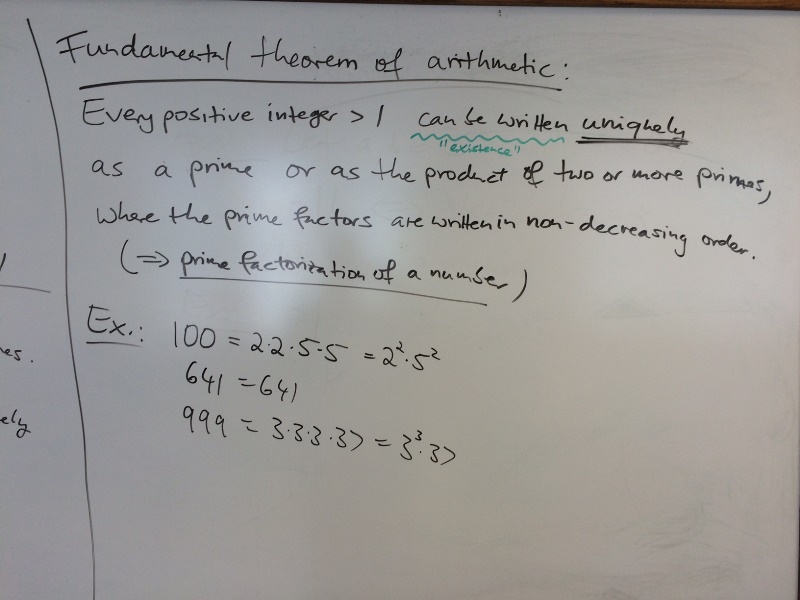 Fundamental theorem of arithmetic:
Every positive integer > 1 can be written uniquely
"existence"
as a prime or as the product of two or more primes,
where the prime factors are written in non-decreasing order.
(⇒ prime factorization of a number)
Ex.: 100 = 2·2·5·5 = 2²·5²
es.
641 = 641
ely
999 = 3·3·3·37 = 3³·37